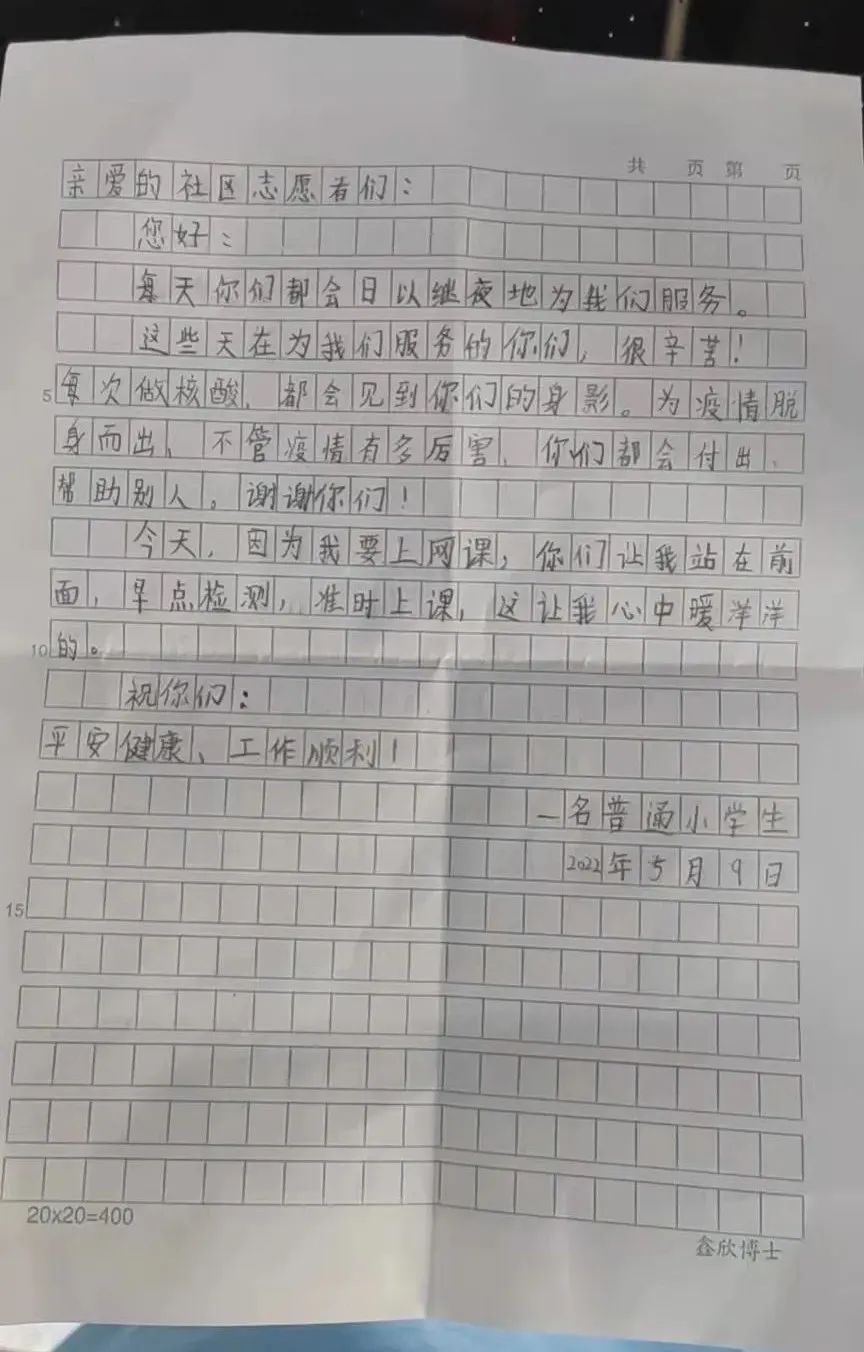 共 页 第 页
亲爱的社区志愿者们：
您好：
每天你们都会日以继夜地为我们服务。
这些天在为我们服务的你们，很辛苦！
5 每次做核酸，都会见到你们的身影。为疫情脱
身而出，不管疫情有多厉害，你们都会付出，
帮助别人。谢谢你们！
今天，因为我要上网课，你们让我站在前
面，早点检测，准时上课，这让我心中暖洋洋
10 的。
祝你们：
平安健康、工作顺利！
一名普通小学生
2022年5月9日
15
20x20=400
鑫欣博士